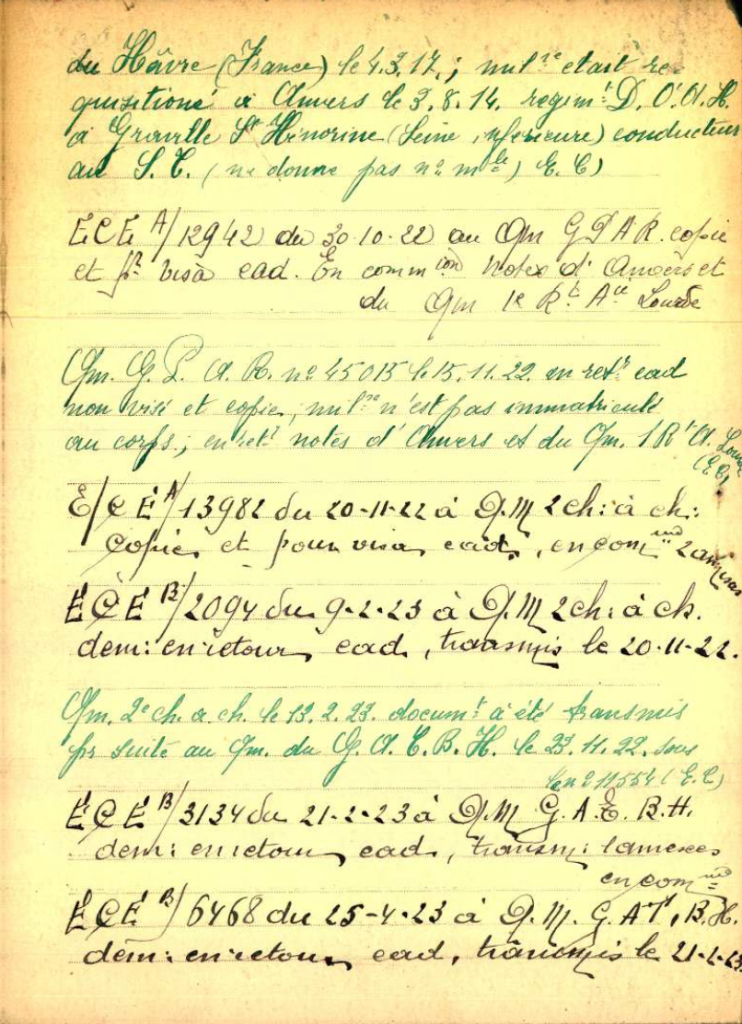 du Hâvre (France) le 4.3.17.; mil re était re-
quisitioné à Anvers le 3.8.14. regimt D. O. A. H.
à Graville Ste Hónorine (Seine inférieure) conducteur
au S. C. (ne donne pas no mle) E. C)
ECE A/12942 du 30-10-22 au Qm G P A R. copie
et pr visa ead. En common notes d' Anvers et
du Qm 1e Rt Aie Lourde
Qm. G. P. A. R. no 45015 le 15.11.22. en retr ead
non visé et copie, mil re n'est pas immatriculé
au corps; en retr notes d'Anvers et du Qm. 1 Rt A. Lourde
(E.C)
E/CE A/13982 du 20-11-22 à Q.M 2 ch: à ch:
copie, et pour visa, ead, en com und 2 annexes
ECE B/2094 du 9-2-23 à Q.M 2 ch: à ch.
dem: en retour, ead, transmis le 20-11-22.
Qm. 2e ch. à ch. le 13.2.23. documt à été transmis
pr suite au Qm. du G. A. C. B. H. le 23.11.22. sous
le no 11554 (E.C)
ECE B/3134 du 21-2-23 à Q.M G. A. E. B.H.
dem: en retour, ead, transm: 1 annexes
en com und
ECE B/6468 du 25-4-23 à Q.M. G. A T, B. H.
dem: en retour, ead, transmis le 21-2-23.